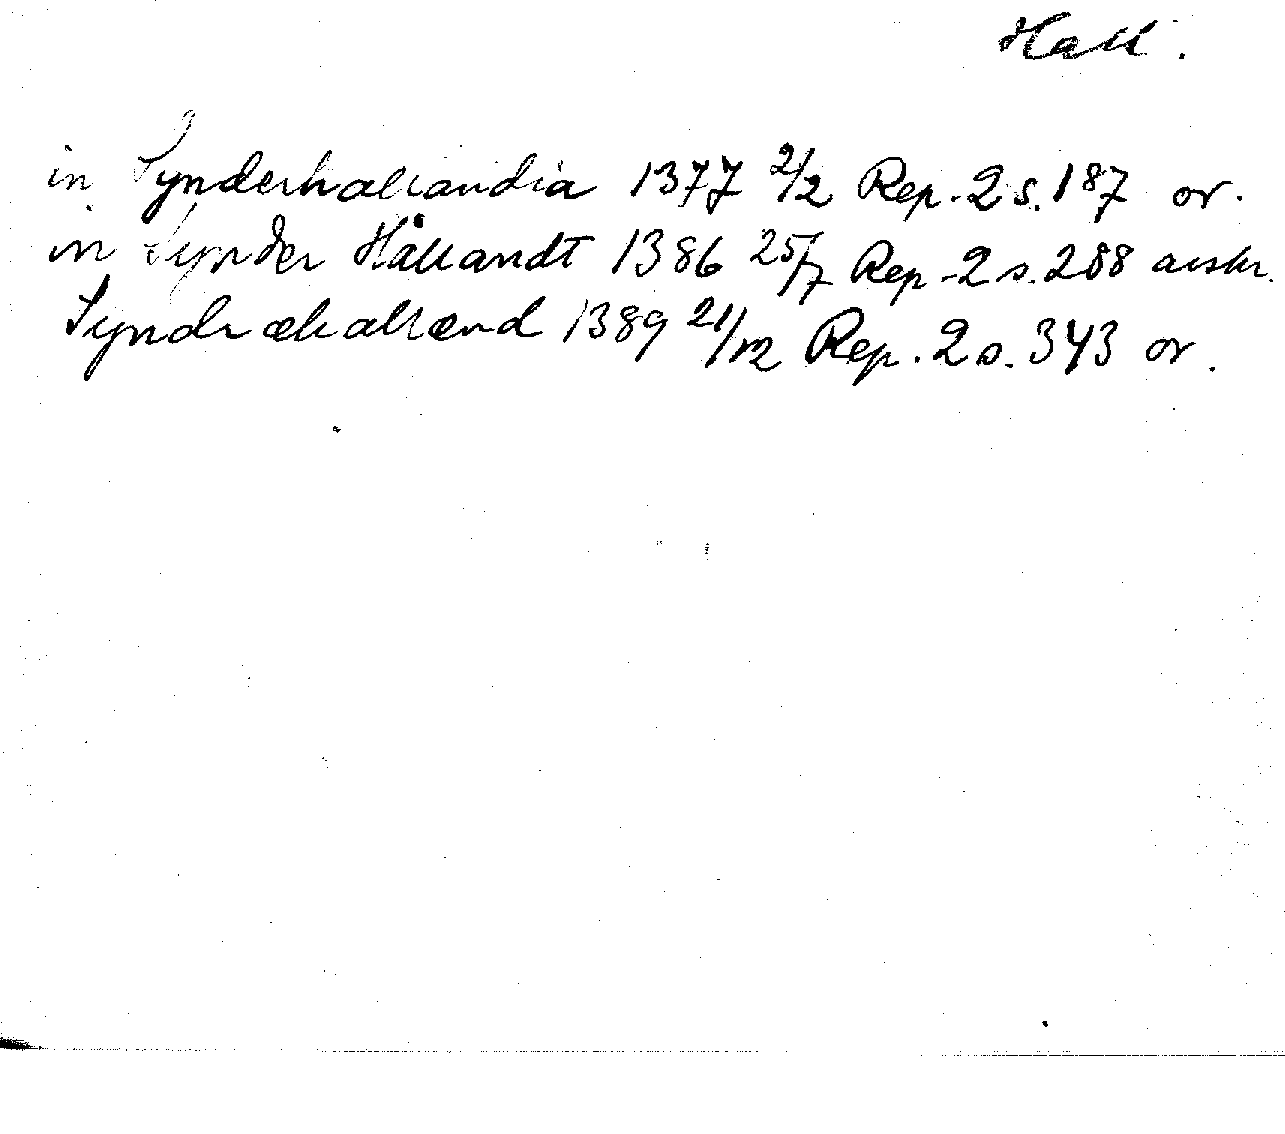 Hall.
in Synderhallandia 1377 2/2 Rep. 2 s. 187 or.
in Synder Hållandt 1386 25/7 Rep. 2 s. 288 avskr.
Syndræhallænd 1389 21/12 Rep. 2 s. 343 or.